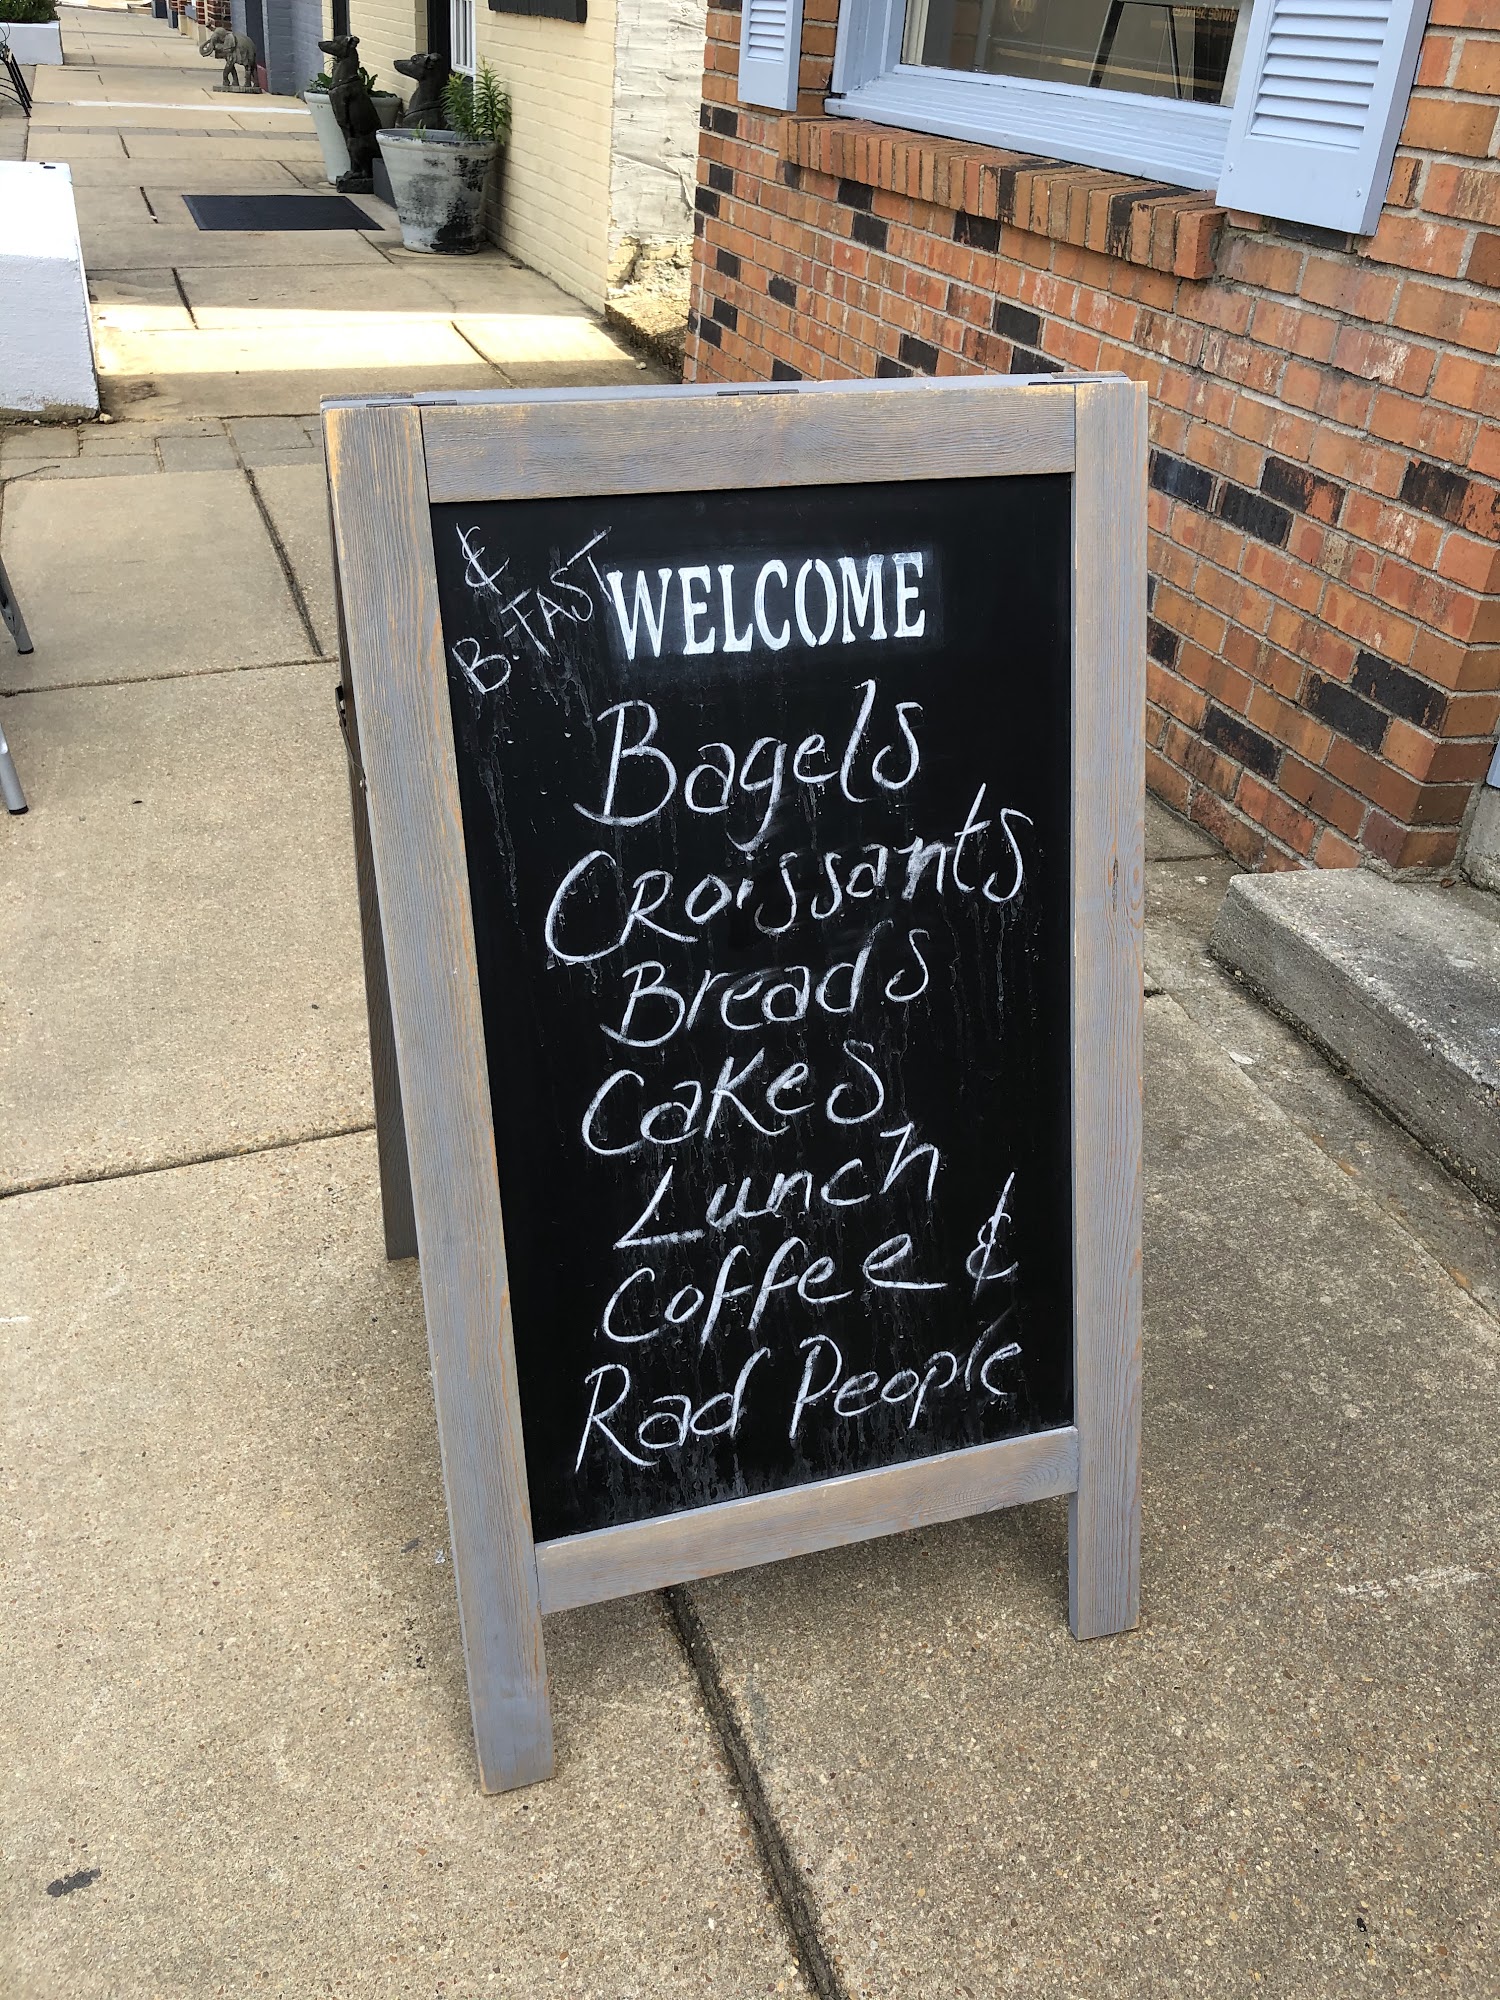 &
B-FAST
WELCOME
Bagels
CRoissants
Breads
Cakes
Lunch
Coffee &
Rad People